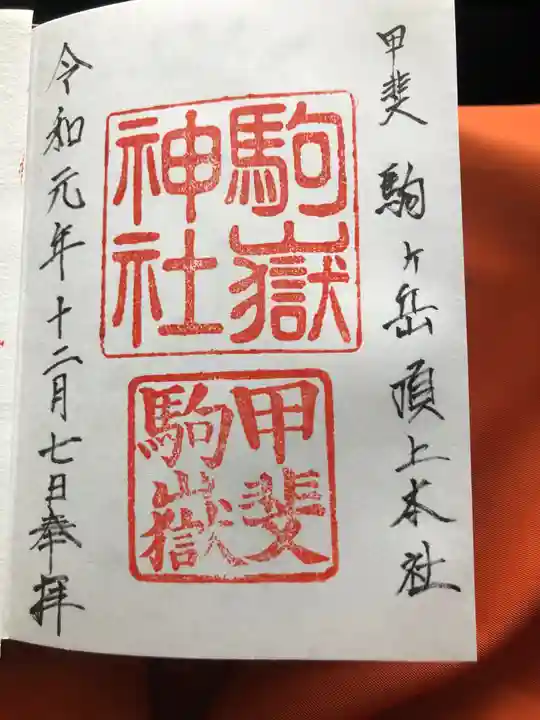 甲斐駒ヶ岳頂上本社
駒嶽
神社
甲斐
駒嶽
令和元年十二月七日奉拝